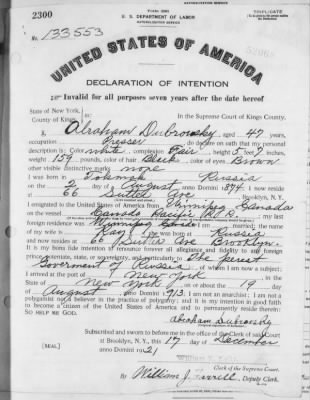 TRIPLICATE
2300
U. S. DEPARTMENT OF LABOR
NATURALIZATION SERVICE
No. 133553
UNITED STATES OF AMERICA
DECLARATION OF INTENTION
Invalid for all purposes seven years after the date hereof
State of New York,
County of Kings,
In the Supreme Court of Kings County.
I, Abraham Dubrowsky, aged 47 years,
occupation Presser, do declare on oath that my personal
description is: Color white, complexion Fair, height 5 feet inches,
weight 159 pounds, color of hair Black, color of eyes Brown
other visible distinctive marks none
I was born in Russia
on the 2 day of August, anno Domini 1874; I now reside
at 66 Ave, Brooklyn, N. Y.
I emigrated to the United States of America from Winnipeg Canada
on the vessel Canada Pacific R.R.; my last
foreign residence was Winnipeg Canada; I am married; the name
of my wife is; she was born in Russia
and now resides at 66 Ave Brooklyn.
It is my bona fide intention to renounce forever all allegiance and fidelity to any foreign
prince, potentate, state, or sovereignty, and particularly to The present
Goverment of Russia, of whom I am now a subject;
I arrived at the port of New York, in the
State of New York, on or about the 19 day
of August, anno Domini 1913; I am not an anarchist; I am not a
polygamist nor a believer in the practice of polygamy; and it is my intention in good faith
to become a citizen of the United States of America and to permanently reside therein:
SO HELP ME GOD.
Abraham Dubrowsky
Subscribed and sworn to before me in the office of the Clerk of said Court
at Brooklyn, N. Y., this 17 day of December
[SEAL] anno Domini 1921
Clerk of the Supreme Court.
By William J. Farrell, Deputy Clerk.